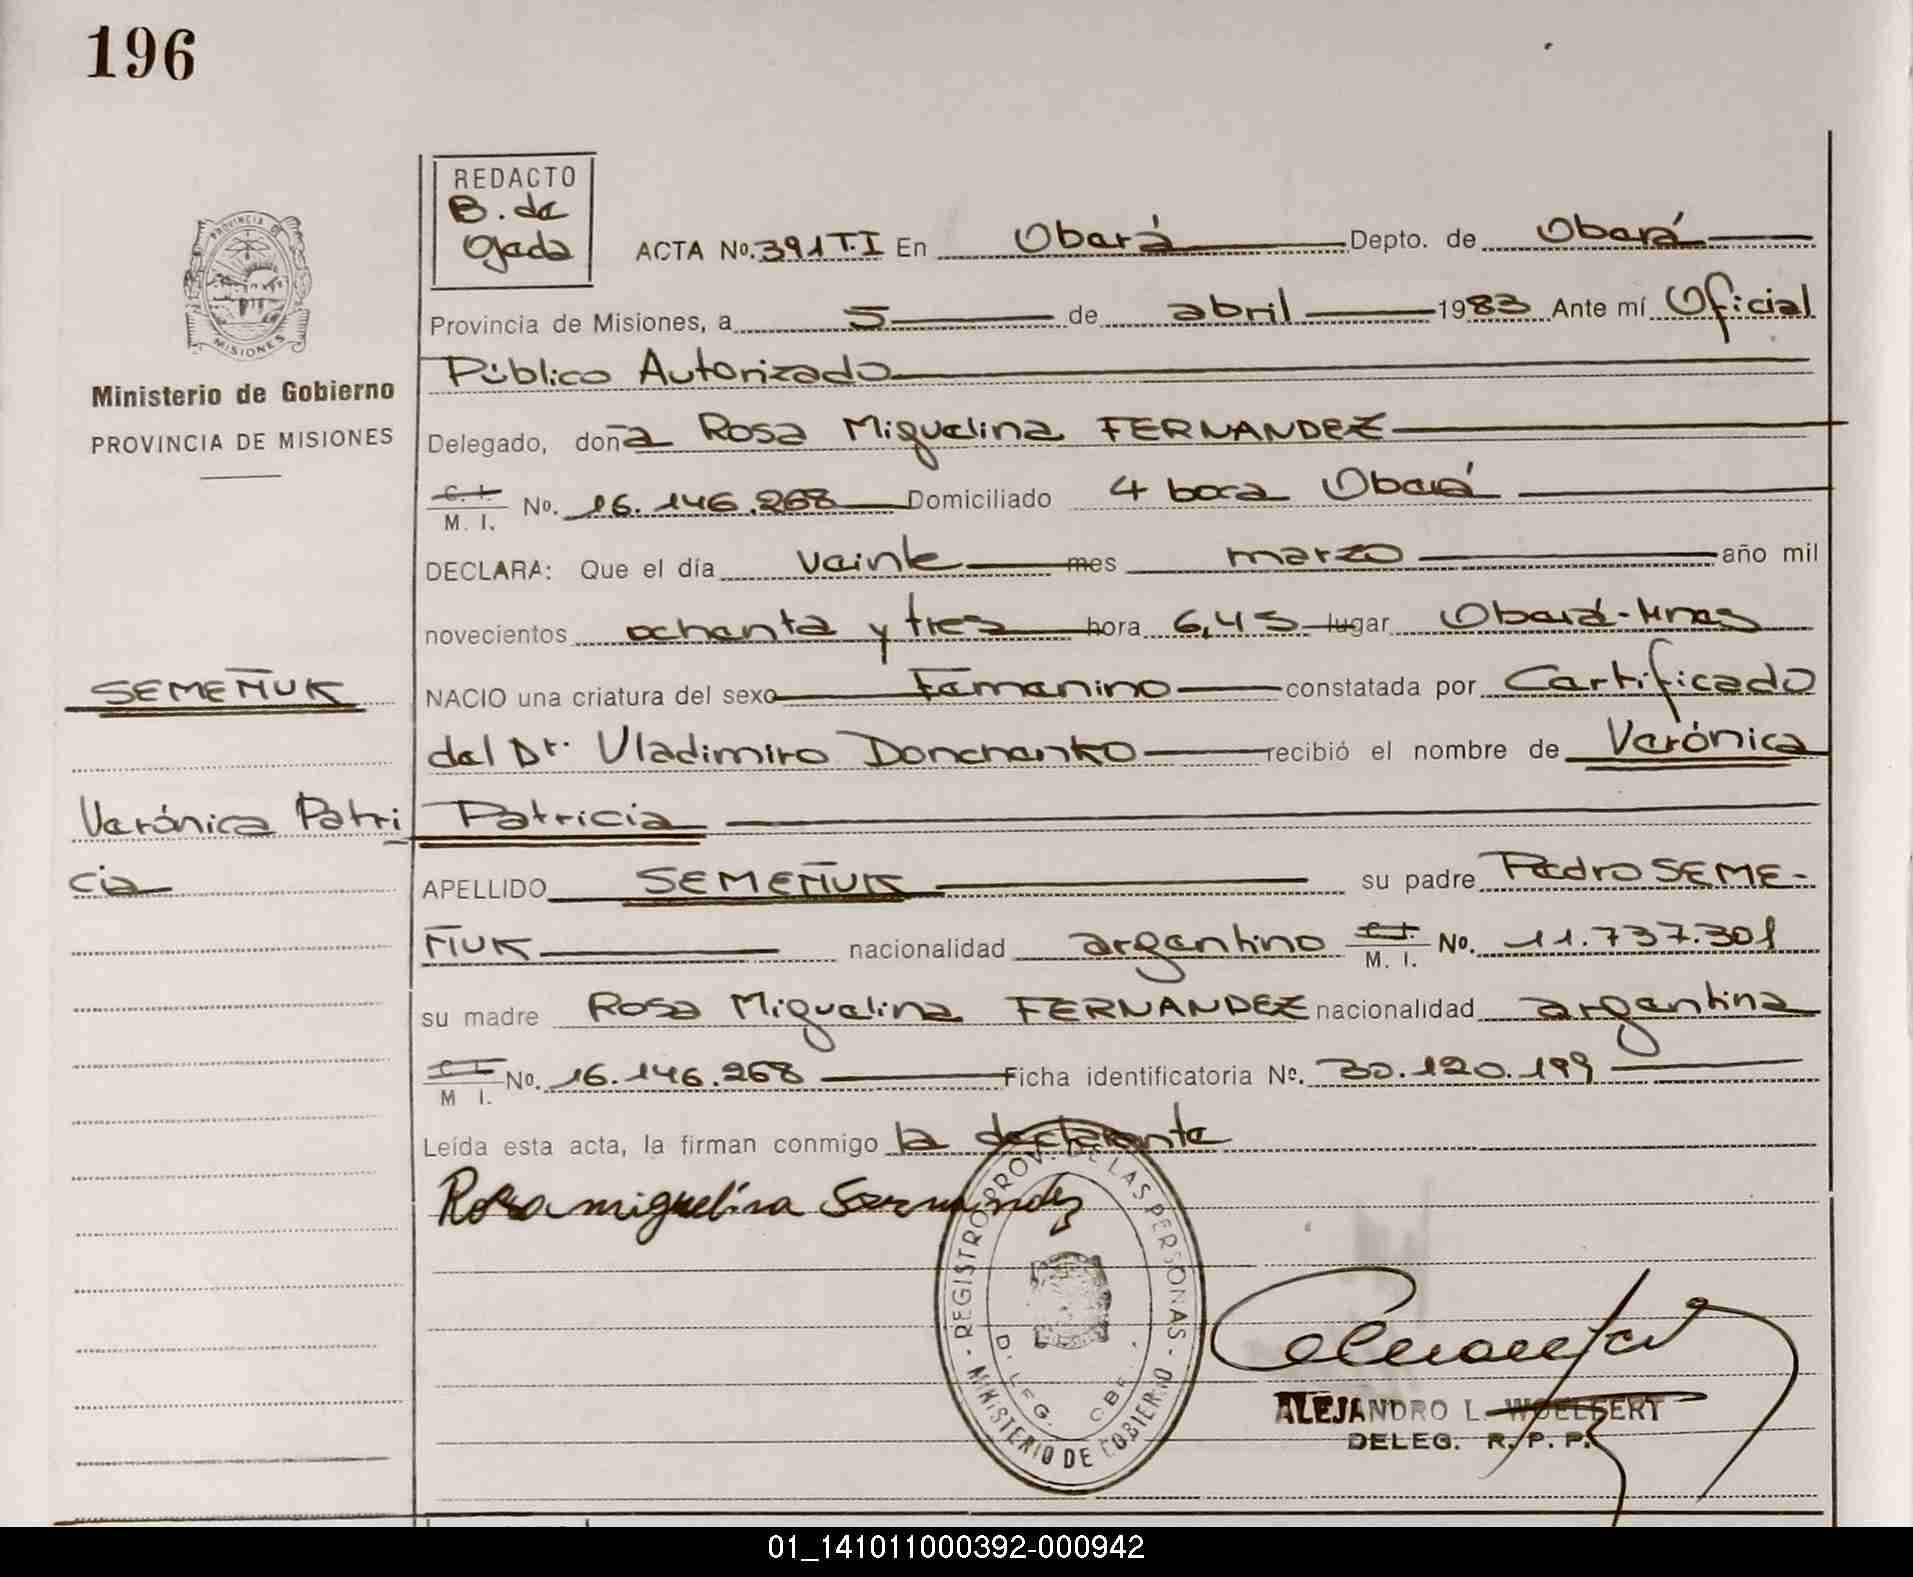 196
REDACTO
B. de
Ojeda
ACTA No. 391 T.I En Oberá Depto. de Oberá
PROVINCIA DE
MISIONES
Provincia de Misiones, a 5 de abril 1983 Ante mí Oficial
Público Autorizado
Ministerio de Gobierno
PROVINCIA DE MISIONES
Delegado, doña Rosa Miguelina FERNANDEZ
C. I.
M. I. No. 16.146.268 Domiciliado 4 boca Oberá
DECLARA: Que el día veinte mes marzo año mil
novecientos ochenta y tres hora 6,45 lugar Oberá-Mnes
SEMEÑUK
NACIO una criatura del sexo Femenino constatada por Certificado
del Dr. Vladimiro Donchenko recibió el nombre de Verónica
Verónica Patri
cia
Patricia
APELLIDO SEMEÑUK su padre Pedro SEME-
ÑUK nacionalidad argentino C.I. M. I. No. 11.737.301
su madre Rosa Miguelina FERNANDEZ nacionalidad argentina
C I
M I. No. 16.146.268 Ficha identificatoria No. 30.120.199
Leída esta acta, la firman conmigo la declarante
Rosa miguelina Fernández
REGISTRO PROV. DE LAS PERSONAS
MINISTERIO DE GOBIERNO
ALEJANDRO L. WOELFERT
DELEG. R. P. P.
01_141011000392-000942